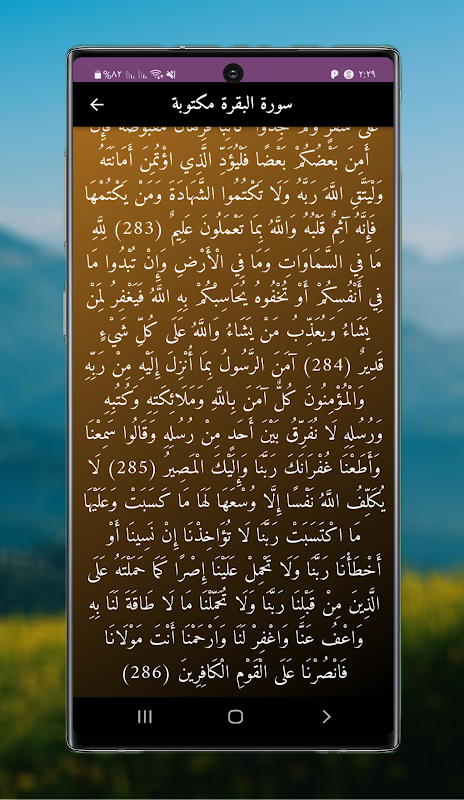 ٢:٢٩
%٨٢
سورة البقرة مكتوبة
أَمِنَ بَعْضُكُمْ بَعْضًا فَلْيُؤَدِّ الَّذِي اؤْتُمِنَ أَمَانَتَهُ
وَلْيَتَّقِ اللَّهَ رَبَّهُ وَلَا تَكْتُمُوا الشَّهَادَةَ وَمَنْ يَكْتُمْهَا
فَإِنَّهُ آثِمٌ قَلْبُهُ وَاللَّهُ بِمَا تَعْمَلُونَ عَلِيمٌ (283) لِلَّهِ
مَا فِي السَّمَاوَاتِ وَمَا فِي الْأَرْضِ وَإِنْ تُبْدُوا مَا
فِي أَنْفُسِكُمْ أَوْ تُخْفُوهُ يُحَاسِبْكُمْ بِهِ اللَّهُ فَيَغْفِرُ لِمَنْ
يَشَاءُ وَيُعَذِّبُ مَنْ يَشَاءُ وَاللَّهُ عَلَى كُلِّ شَيْءٍ
قَدِيرٌ (284) آمَنَ الرَّسُولُ بِمَا أُنْزِلَ إِلَيْهِ مِنْ رَبِّهِ
وَالْمُؤْمِنُونَ كُلٌّ آمَنَ بِاللَّهِ وَمَلَائِكَتِهِ وَكُتُبِهِ
وَرُسُلِهِ لَا نُفَرِّقُ بَيْنَ أَحَدٍ مِنْ رُسُلِهِ وَقَالُوا سَمِعْنَا
وَأَطَعْنَا غُفْرَانَكَ رَبَّنَا وَإِلَيْكَ الْمَصِيرُ (285) لَا
يُكَلِّفُ اللَّهُ نَفْسًا إِلَّا وُسْعَهَا لَهَا مَا كَسَبَتْ وَعَلَيْهَا
مَا اكْتَسَبَتْ رَبَّنَا لَا تُؤَاخِذْنَا إِنْ نَسِينَا أَوْ
أَخْطَأْنَا رَبَّنَا وَلَا تَحْمِلْ عَلَيْنَا إِصْرًا كَمَا حَمَلْتَهُ عَلَى
الَّذِينَ مِنْ قَبْلِنَا رَبَّنَا وَلَا تُحَمِّلْنَا مَا لَا طَاقَةَ لَنَا بِهِ
وَاعْفُ عَنَّا وَاغْفِرْ لَنَا وَارْحَمْنَا أَنْتَ مَوْلَانَا
فَانْصُرْنَا عَلَى الْقَوْمِ الْكَافِرِينَ (286)